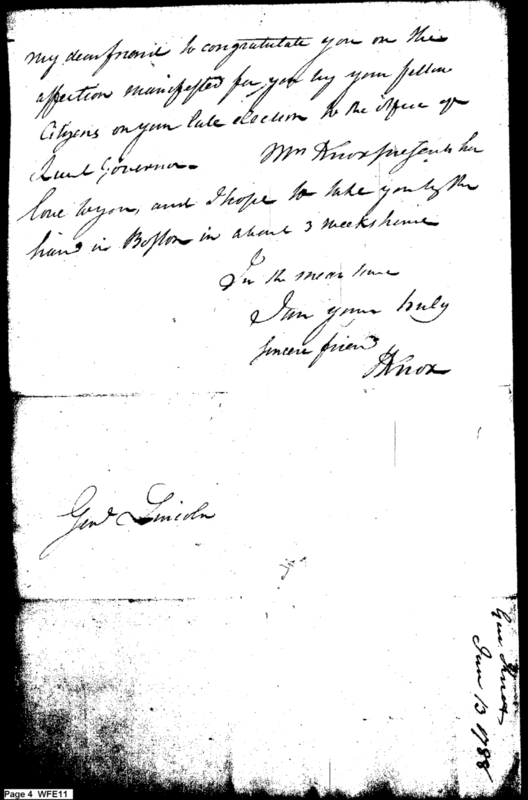 my dear friend to congratulate you on the
affection manifested for you by your fellow
Citizens on your late election to the office of
Lieut Governor. Mrs Knox presents her
love to you, and I hope to take you by the
hand in Boston in about 3 weeks hence
In the mean time
I am your truly
sincere friend
HKnox
Genl Lincoln
Genl Knox
June 13 1788
Page 4 WFE11